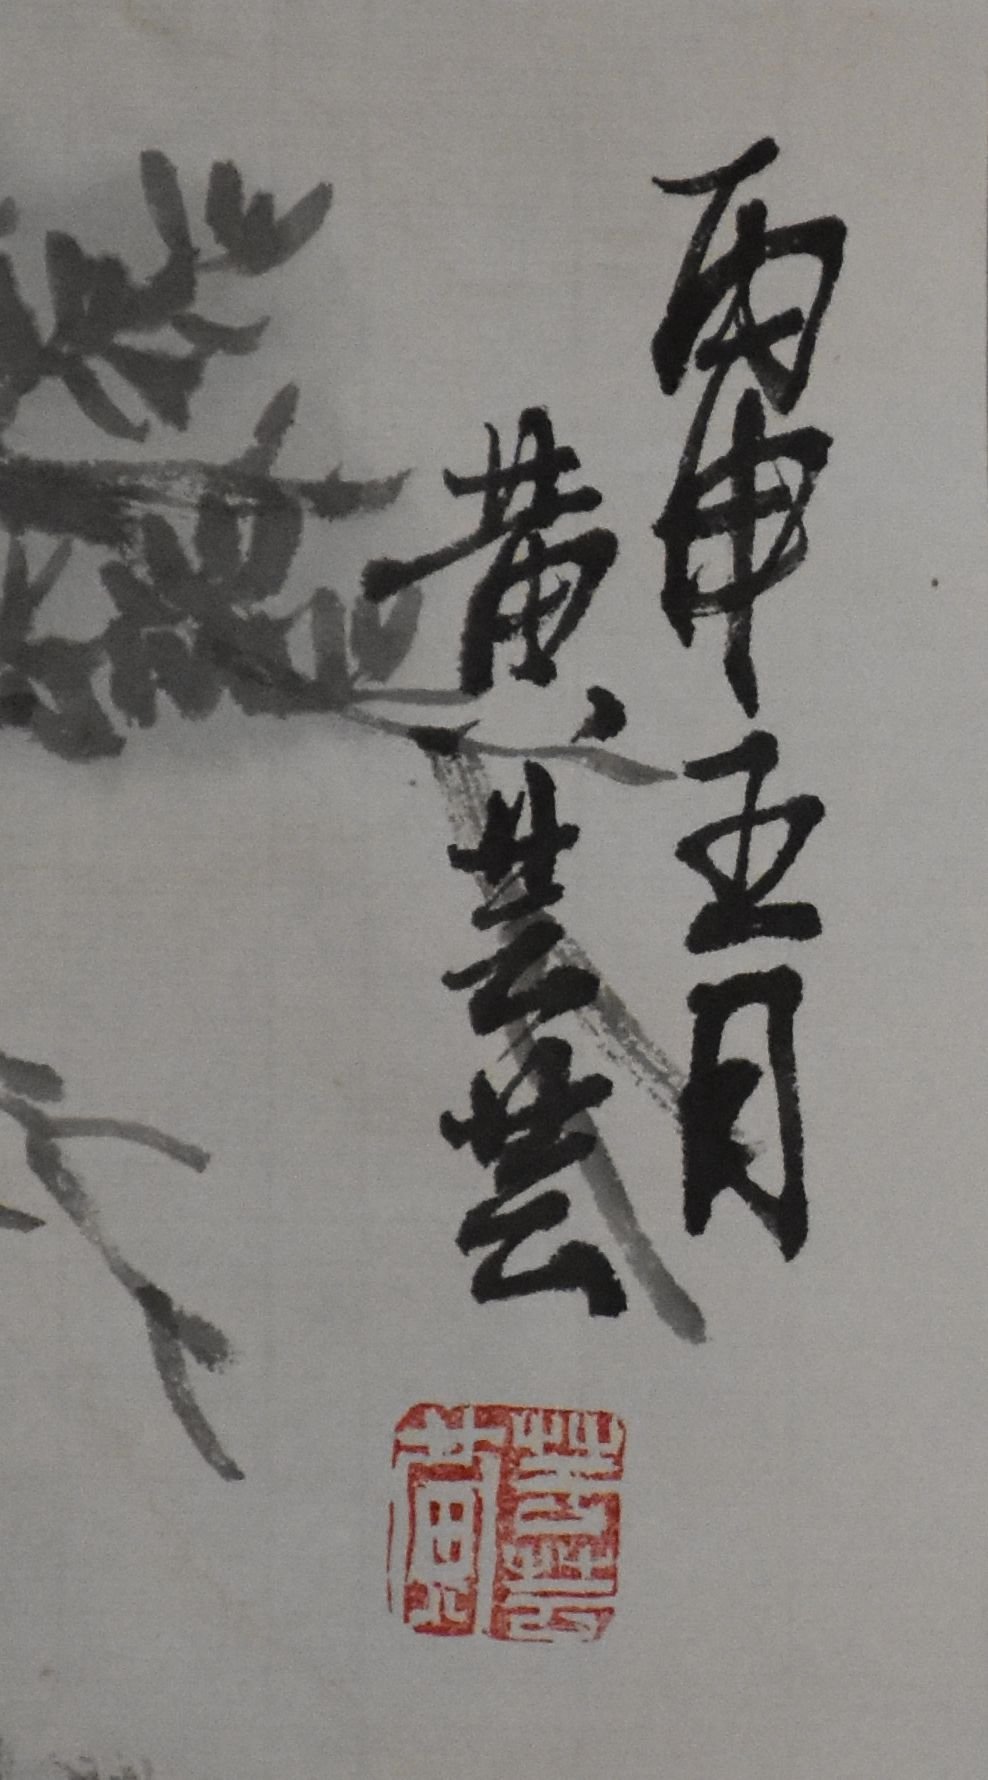 丙申五月
黄芸芸
芸芸